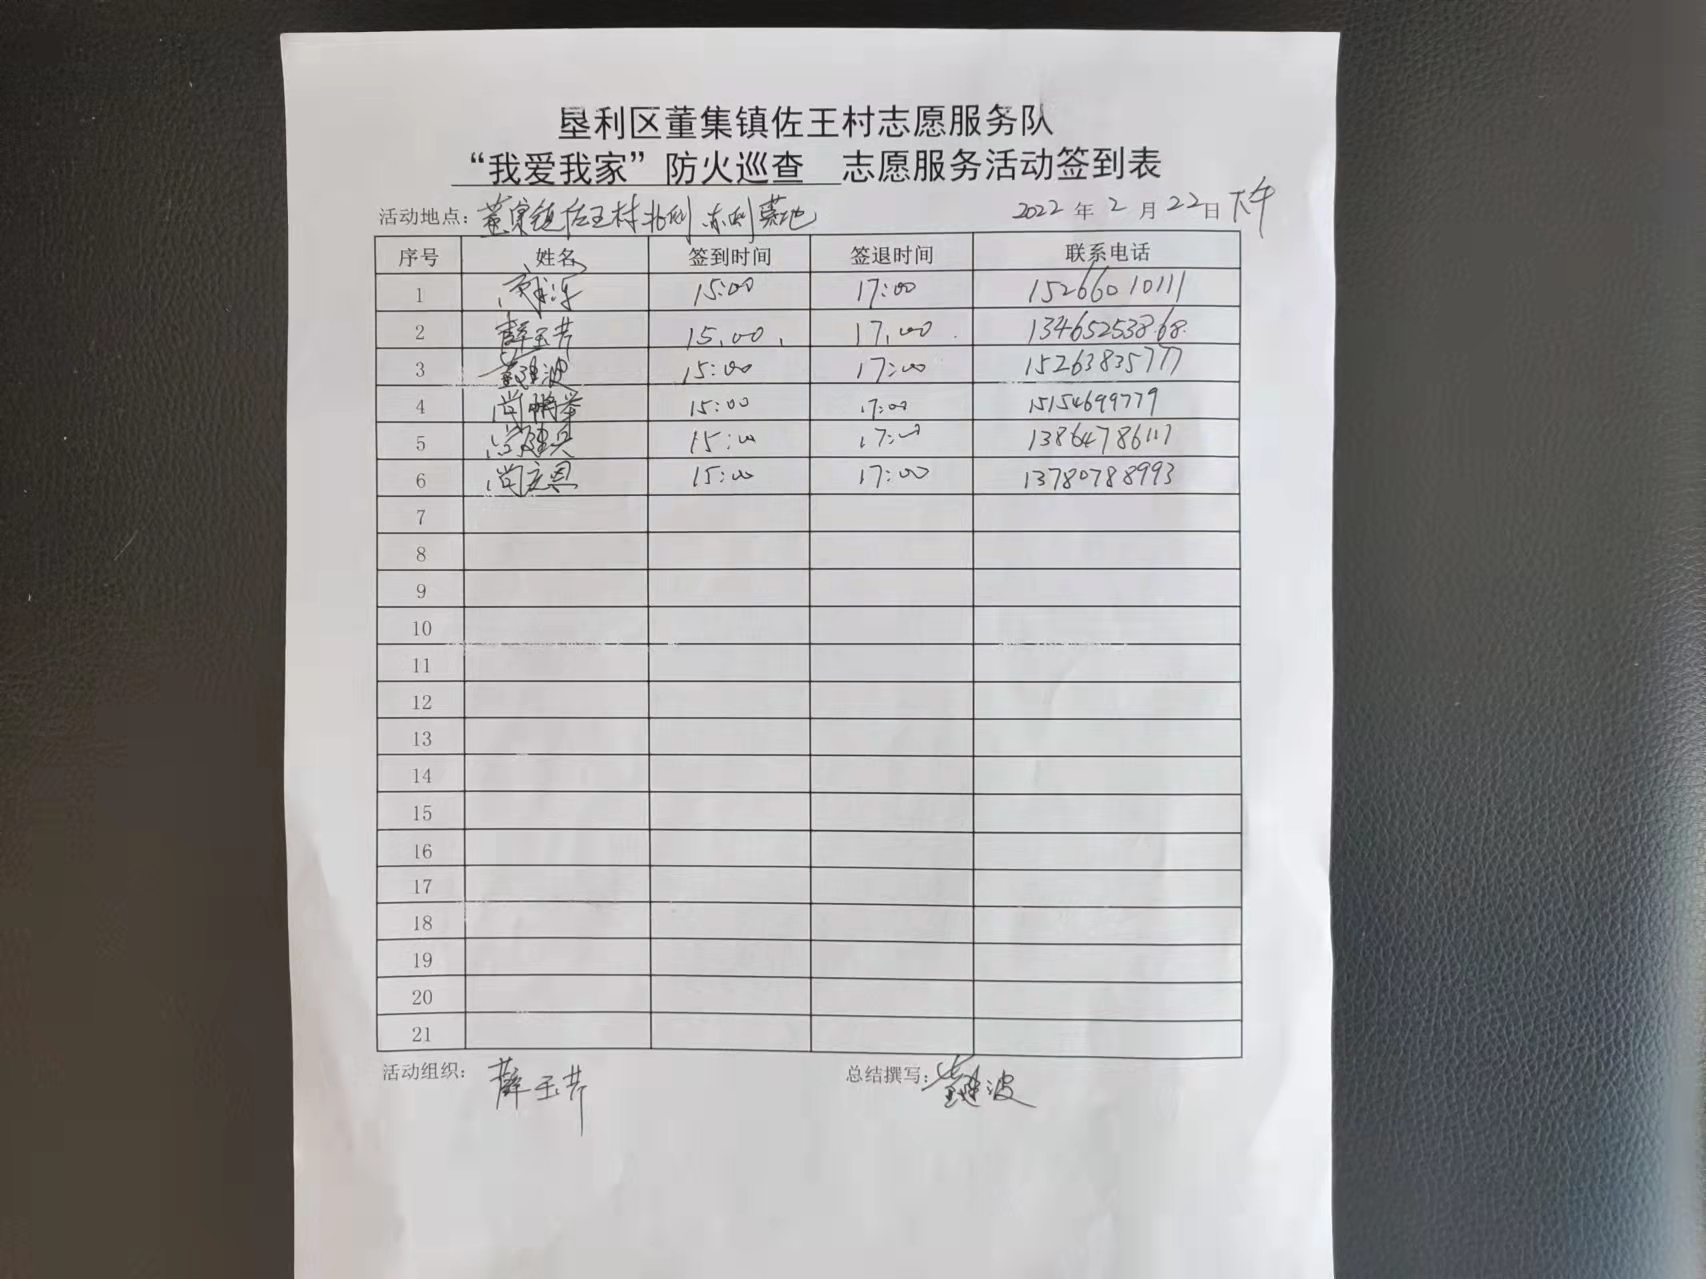 垦利区董集镇佐王村志愿服务队
“我爱我家”防火巡查 志愿服务活动签到表
活动地点：董集镇佐王村北侧 东侧墓地 2022年2月22日下午
序号 姓名 签到时间 签退时间 联系电话
1 15:00 17:00 15266010111
2 薛玉芹 15:00 17:00 13465253868
3 董建波 15:00 17:00 15263835777
4 尚鹏举 15:00 17:00 15154699779
5 尚建兵 15:00 17:00 13864786117
6 尚立恩 15:00 17:00 13780788993
7
8
9
10
11
12
13
14
15
16
17
18
19
20
21
活动组织：薛玉芹 总结撰写：董建波